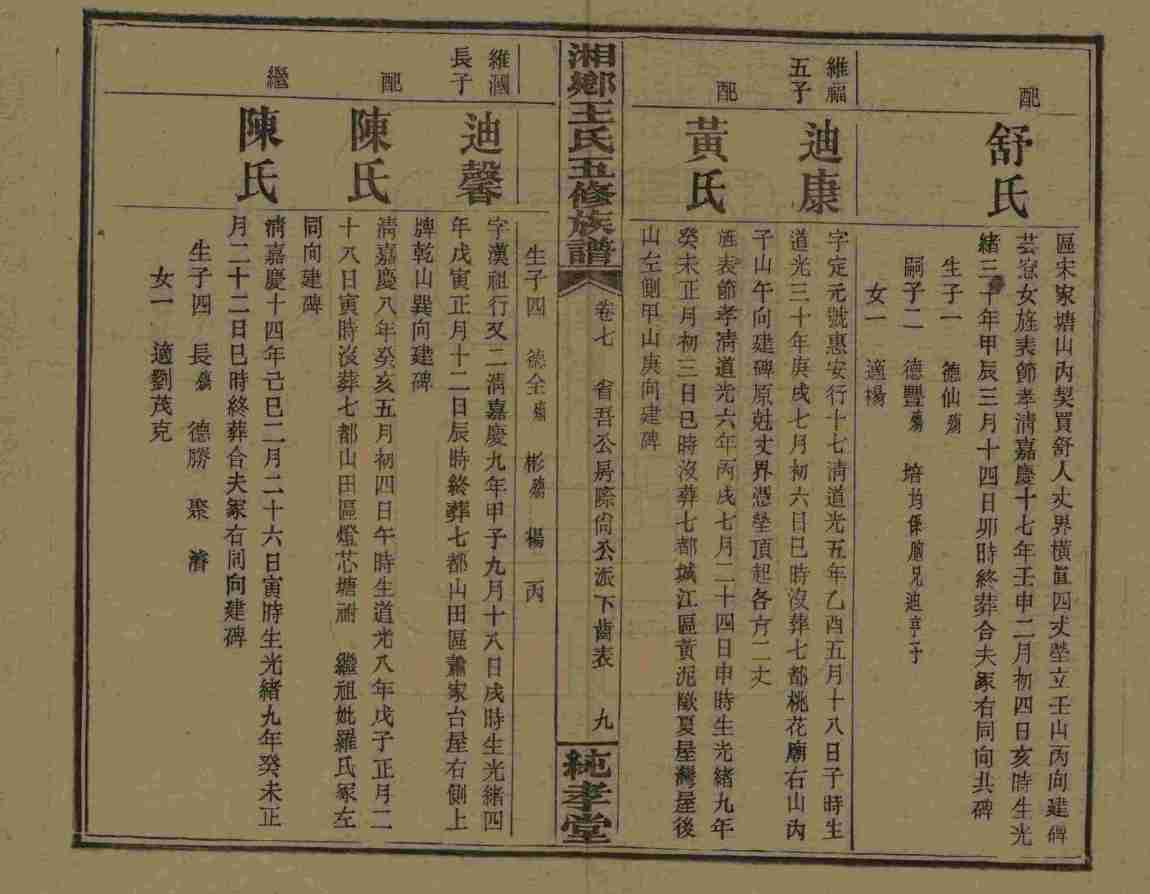 區宋家塘山內契買舒人丈界橫直四丈塋立壬山丙向建碑
配
舒氏
芸寮女旌表節孝清嘉慶十七年壬申二月初四日亥時生光
緒三十年甲辰三月十四日卯時終葬合夫冢右同向共碑
生子一 德仙殤
嗣子二 德豐殤 培均係胞兄迪亨子
女一 適楊
維福
五子
迪康
字定元號惠安行十七清道光五年乙酉五月十八日子時生
道光三十年庚戌七月初六日巳時沒葬七都桃花廟右山內
子山午向建碑原兙丈界憑塋頂起各方二丈
配
黃氏
旌表節孝清道光六年丙戌七月二十四日申時生光緒九年
癸未正月初三日巳時沒葬七都城江區黃泥歐夏屋灣屋後
山左側甲山庚向建碑
湘鄉王氏五修族譜
卷七 省吾公房際尙公派下齒表 九
純孝堂
生子四 德全殤 彬殤 楊 丙
維瀾
長子
迪馨
字漢祖行又二清嘉慶九年甲子九月十八日戌時生光緒四
年戊寅正月十二日辰時終葬七都山田區蕭家台屋右側上
牌乾山巽向建碑
配
陳氏
清嘉慶八年癸亥五月初四日午時生道光八年戊子正月二
十八日寅時沒葬七都山田區燈芯塘祔 繼祖妣羅氏冢左
同向建碑
繼
陳氏
清嘉慶十四年己巳二月二十六日寅時生光緒九年癸未正
月二十二日巳時終葬合夫冢右同向建碑
生子四 長殤 德勝 聚 濬
女一 適劉茂克